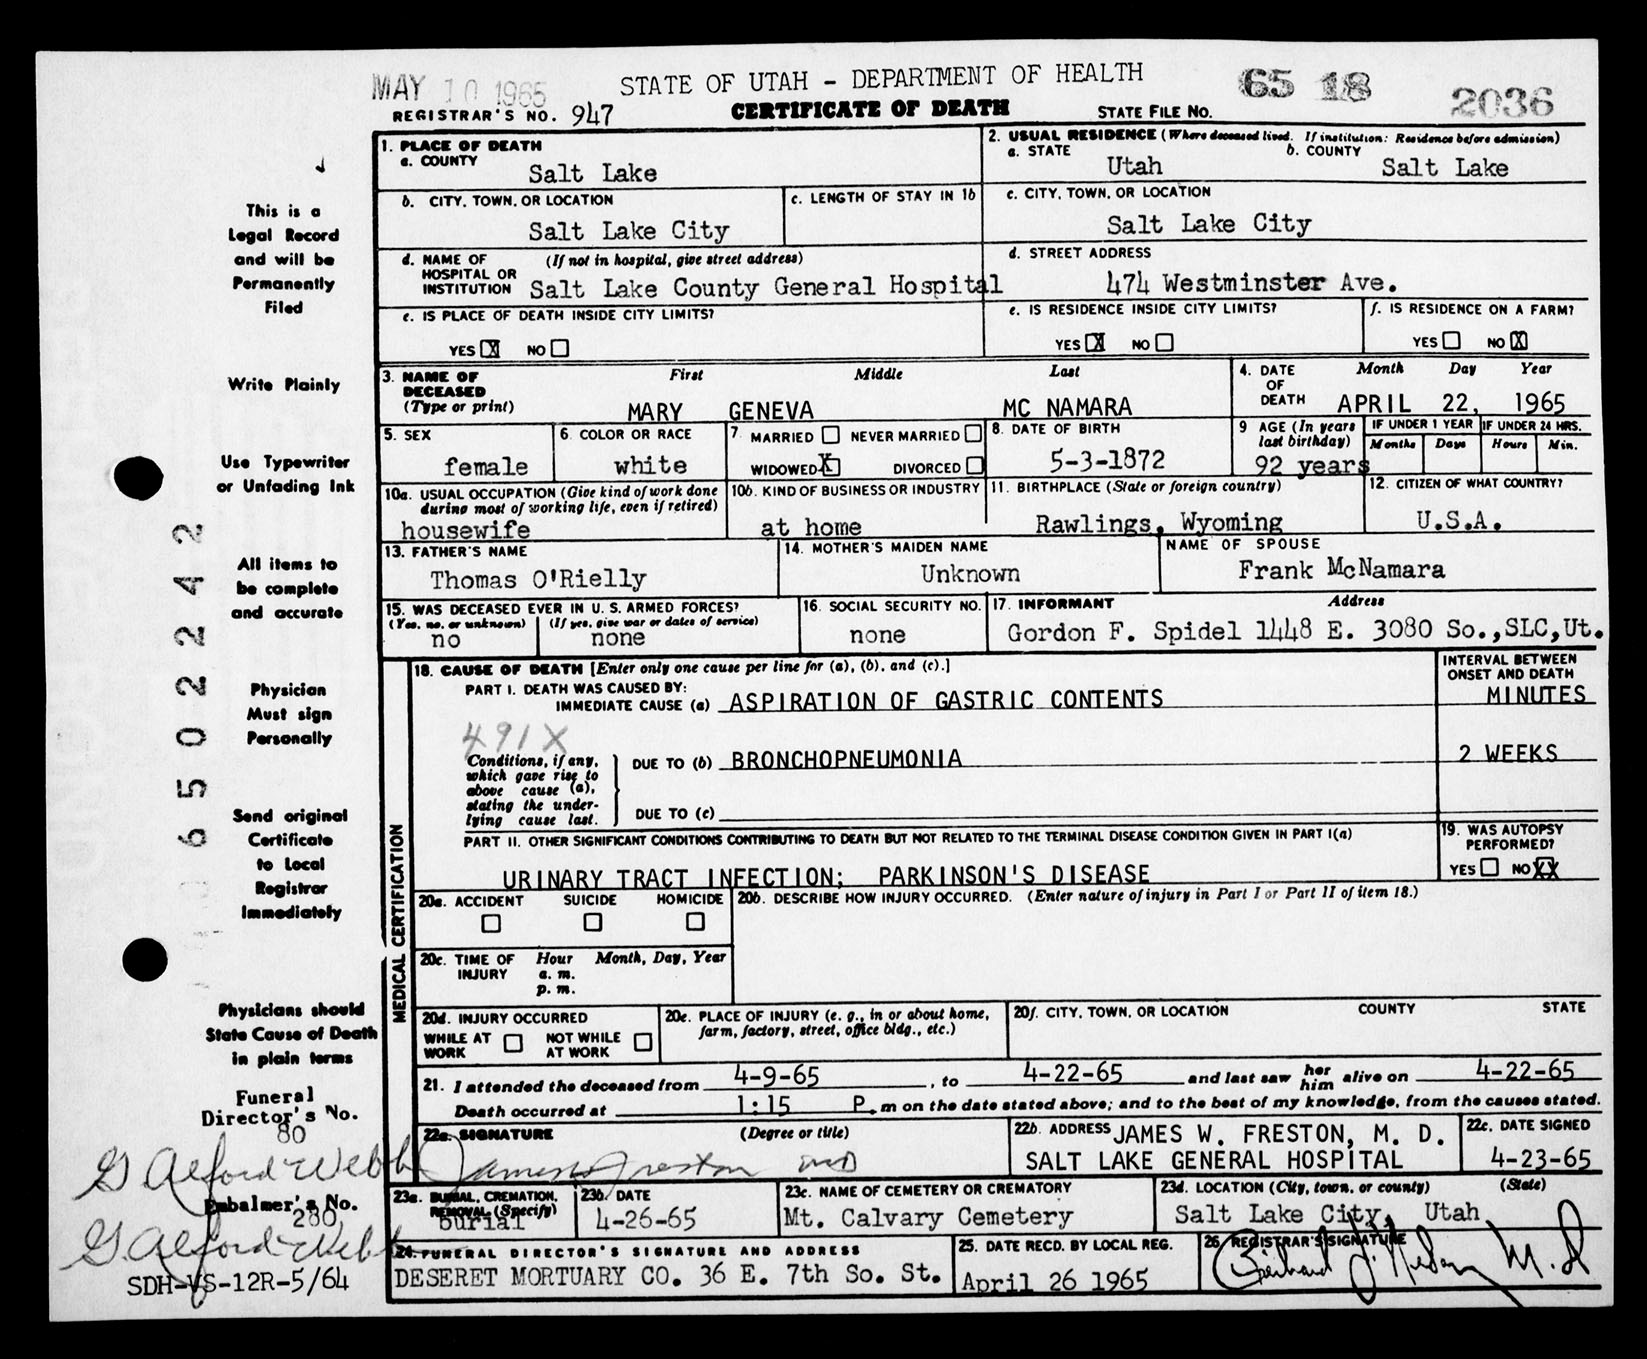 MAY 10 1965
STATE OF UTAH - DEPARTMENT OF HEALTH
65 18 2036
REGISTRAR'S NO. 947
CERTIFICATE OF DEATH
STATE FILE NO.
This is a
Legal Record
and will be
Permanently
Filed
Write Plainly
Use Typewriter
or Unfading Ink
All items to
be complete
and accurate
Physician
Must sign
Personally
Send original
Certificate
to Local
Registrar
Immediately
Physicians should
State Cause of Death
in plain terms
Funeral
Director's No.
80
G Alford Webb
Embalmer's No.
280
G Alford Webb
SDH-VS-12R-5/64
65022242
1. PLACE OF DEATH
a. COUNTY
Salt Lake
2. USUAL RESIDENCE (Where deceased lived. If institution: Residence before admission)
a. STATE
Utah
b. COUNTY
Salt Lake
b. CITY, TOWN, OR LOCATION
Salt Lake City
c. LENGTH OF STAY IN 1b
c. CITY, TOWN, OR LOCATION
Salt Lake City
d. NAME OF (If not in hospital, give street address)
HOSPITAL OR
INSTITUTION Salt Lake County General Hospital
d. STREET ADDRESS
474 Westminster Ave.
e. IS PLACE OF DEATH INSIDE CITY LIMITS?
YES X NO
e. IS RESIDENCE INSIDE CITY LIMITS?
YES X NO
f. IS RESIDENCE ON A FARM?
YES NO X
3. NAME OF
DECEASED
(Type or print)
First Middle Last
MARY GENEVA MC NAMARA
4. DATE
OF
DEATH
Month Day Year
APRIL 22, 1965
5. SEX
female
6. COLOR OR RACE
white
7. MARRIED NEVER MARRIED
WIDOWED X DIVORCED
8. DATE OF BIRTH
5-3-1872
9 AGE (In years
last birthday)
92 years
IF UNDER 1 YEAR
Months Days
IF UNDER 24 HRS.
Hours Min.
10a. USUAL OCCUPATION (Give kind of work done
during most of working life, even if retired)
housewife
10b. KIND OF BUSINESS OR INDUSTRY
at home
11. BIRTHPLACE (State or foreign country)
Rawlings, Wyoming
12. CITIZEN OF WHAT COUNTRY?
U.S.A.
13. FATHER'S NAME
Thomas O'Rielly
14. MOTHER'S MAIDEN NAME
Unknown
NAME OF SPOUSE
Frank McNamara
15. WAS DECEASED EVER IN U. S. ARMED FORCES?
(Yes, no, or unknown) (If yes, give war or dates of service)
no none
16. SOCIAL SECURITY NO.
none
17. INFORMANT Address
Gordon F. Spidel 1448 E. 3080 So.,SLC,Ut.
MEDICAL CERTIFICATION
18. CAUSE OF DEATH [Enter only one cause per line for (a), (b), and (c).]
INTERVAL BETWEEN
ONSET AND DEATH
PART I. DEATH WAS CAUSED BY:
IMMEDIATE CAUSE (a) ASPIRATION OF GASTRIC CONTENTS
MINUTES
491X
Conditions, if any,
which gave rise to
above cause (a),
stating the under-
lying cause last.
DUE TO (b) BRONCHOPNEUMONIA
2 WEEKS
DUE TO (c)
PART II. OTHER SIGNIFICANT CONDITIONS CONTRIBUTING TO DEATH BUT NOT RELATED TO THE TERMINAL DISEASE CONDITION GIVEN IN PART I(a)
URINARY TRACT INFECTION; PARKINSON'S DISEASE
19. WAS AUTOPSY
PERFORMED?
YES NO XX
20a. ACCIDENT SUICIDE HOMICIDE
20b. DESCRIBE HOW INJURY OCCURRED. (Enter nature of injury in Part I or Part II of item 18.)
20c. TIME OF Hour Month, Day, Year
INJURY a. m.
p. m.
20d. INJURY OCCURRED
WHILE AT NOT WHILE
WORK AT WORK
20e. PLACE OF INJURY (e. g., in or about home,
farm, factory, street, office bldg., etc.)
20f. CITY, TOWN, OR LOCATION COUNTY STATE
21. I attended the deceased from 4-9-65, to 4-22-65 and last saw her him alive on 4-22-65
Death occurred at 1:15 P. m on the date stated above; and to the best of my knowledge, from the causes stated.
22a. SIGNATURE (Degree or title)
James W Freston MD
22b. ADDRESS JAMES W. FRESTON, M. D.
SALT LAKE GENERAL HOSPITAL
22c. DATE SIGNED
4-23-65
23a. BURIAL, CREMATION,
REMOVAL (Specify)
burial
23b. DATE
4-26-65
23c. NAME OF CEMETERY OR CREMATORY
Mt. Calvary Cemetery
23d. LOCATION (City, town, or county) (State)
Salt Lake City, Utah
24. FUNERAL DIRECTOR'S SIGNATURE AND ADDRESS
DESERET MORTUARY CO. 36 E. 7th So. St.
25. DATE RECD. BY LOCAL REG.
April 26 1965
26. REGISTRAR'S SIGNATURE
M.D